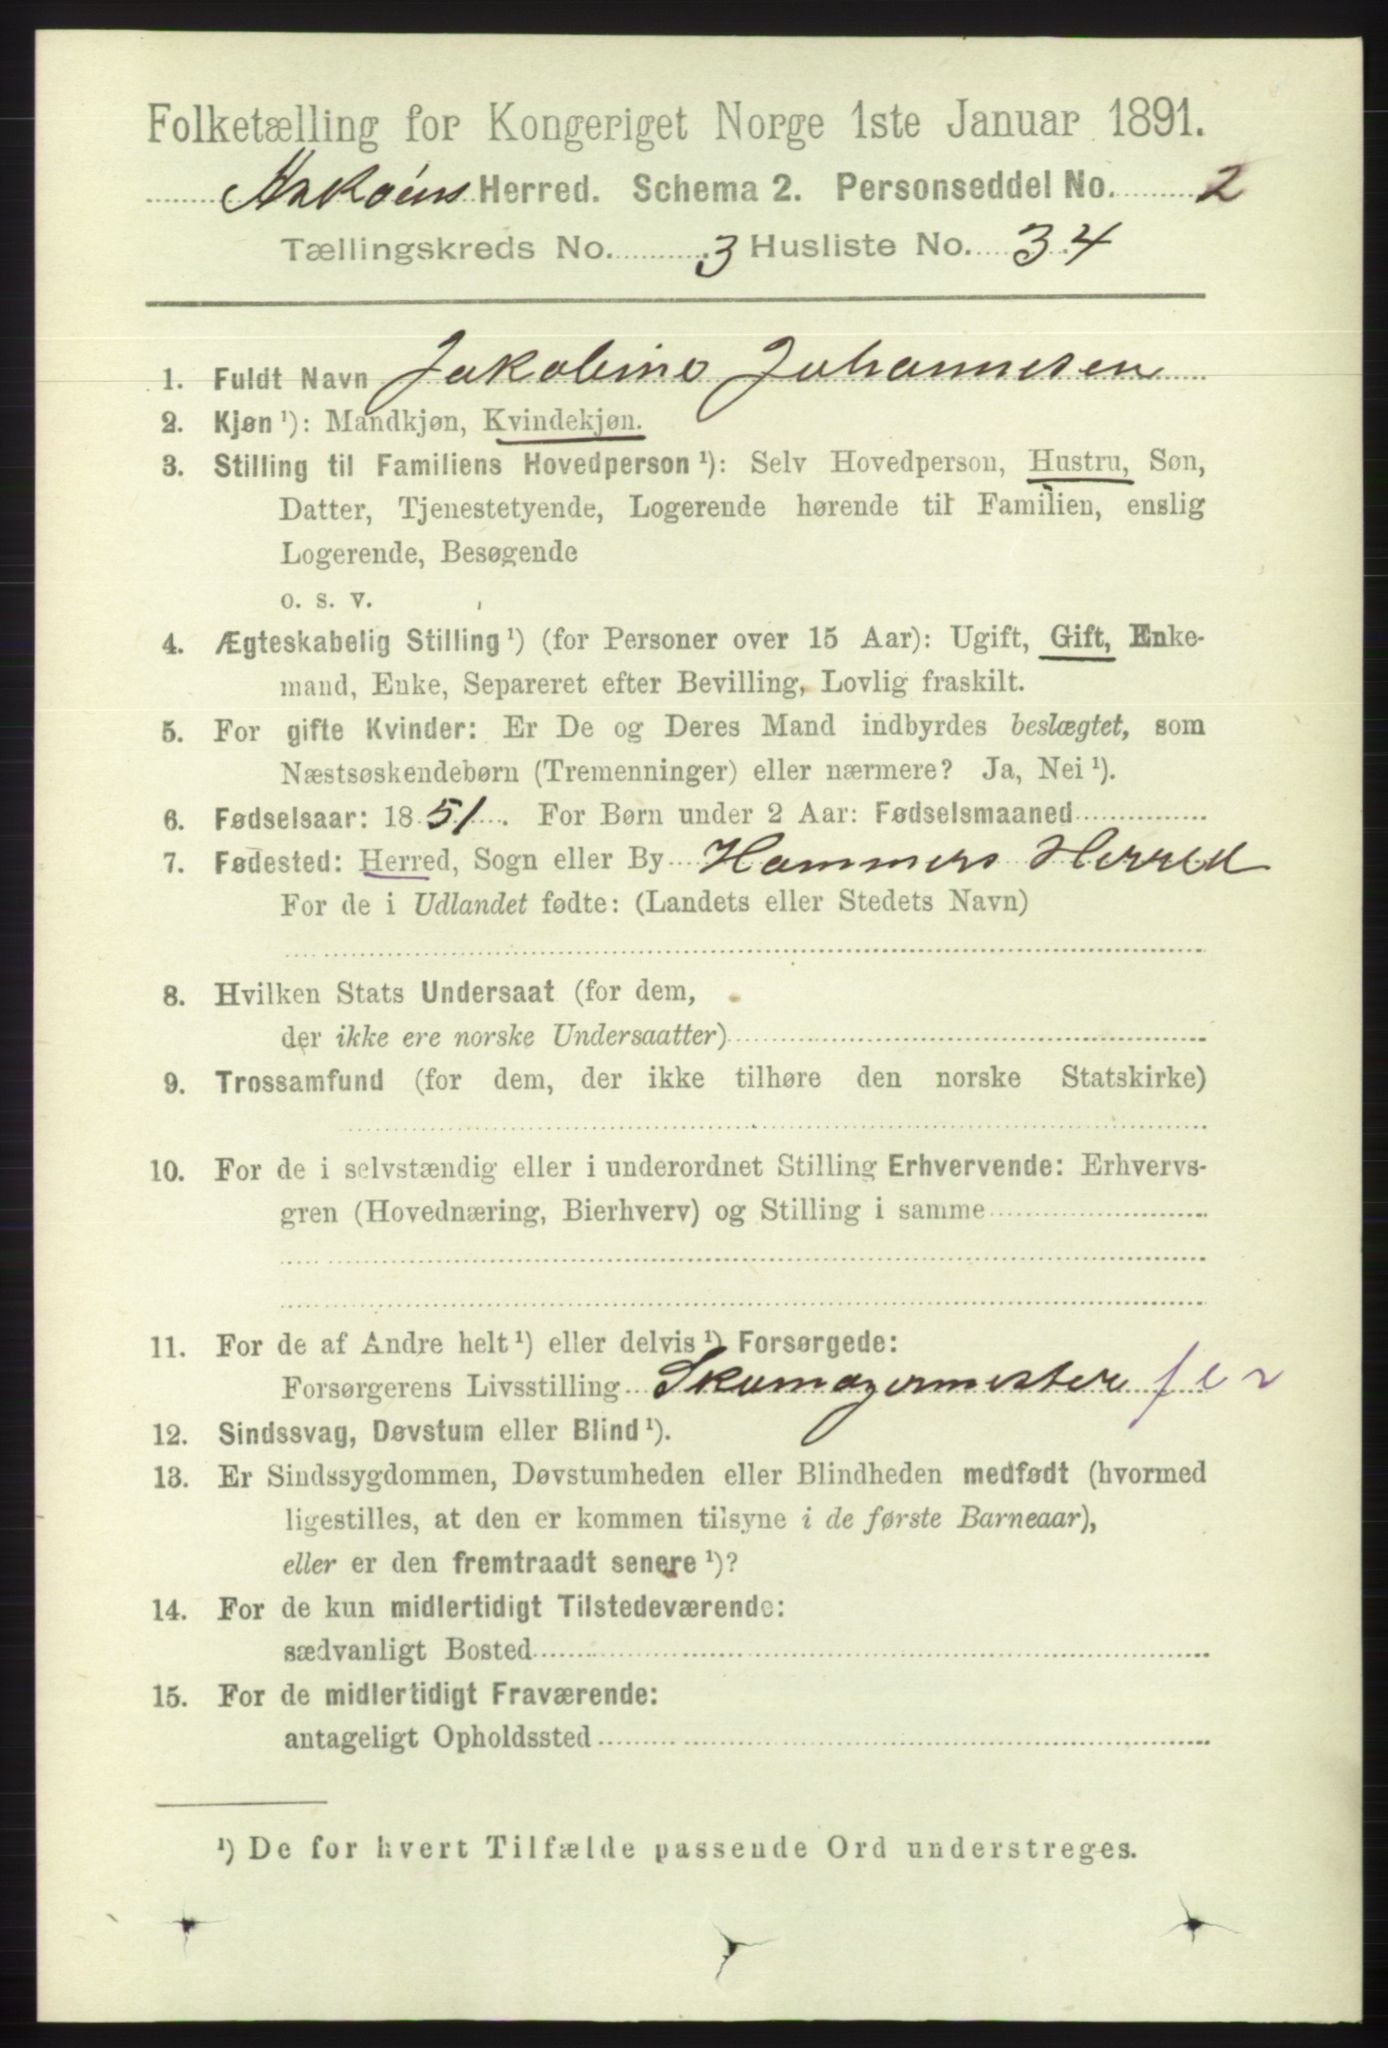 Folketælling for Kongeriget Norge 1ste Januar 1891.
Askøens Herred. Schema 2. Personseddel No. 2
Tællingskreds No. 3 Husliste No. 34
1. Fuldt Navn Jakobine Johannesen
2. Kjøn ¹): Mandkjøn, Kvindekjøn.
3. Stilling til Familiens Hovedperson ¹): Selv Hovedperson, Hustru, Søn,
Datter, Tjenestetyende, Logerende hørende til Familien, enslig
Logerende, Besøgende
o. s. v.
4. Ægteskabelig Stilling ¹) (for Personer over 15 Aar): Ugift, Gift, Enke-
mand, Enke, Separeret efter Bevilling, Lovlig fraskilt.
5. For gifte Kvinder: Er De og Deres Mand indbyrdes beslægtet, som
Næstsøskendebørn (Tremenninger) eller nærmere? Ja, Nei ¹).
6. Fødselsaar: 1851. For Børn under 2 Aar: Fødselsmaaned
7. Fødested: Herred, Sogn eller By Hammers Herred
For de i Udlandet fødte: (Landets eller Stedets Navn)
8. Hvilken Stats Undersaat (for dem,
der ikke ere norske Undersaatter)
9. Trossamfund (for dem, der ikke tilhøre den norske Statskirke)
10. For de i selvstændig eller i underordnet Stilling Erhvervende: Erhvervs-
gren (Hovednæring, Bierhverv) og Stilling i samme
11. For de af Andre helt ¹) eller delvis ¹) Forsørgede:
Forsørgerens Livsstilling Skomagermester
12. Sindssvag, Døvstum eller Blind ¹).
13. Er Sindssygdommen, Døvstumheden eller Blindheden medfødt (hvormed
ligestilles, at den er kommen tilsyne i de første Barneaar),
eller er den fremtraadt senere ¹)?
14. For de kun midlertidigt Tilstedeværende:
sædvanligt Bosted
15. For de midlertidigt Fraværende:
antageligt Opholdssted
¹) De for hvert Tilfælde passende Ord understreges.